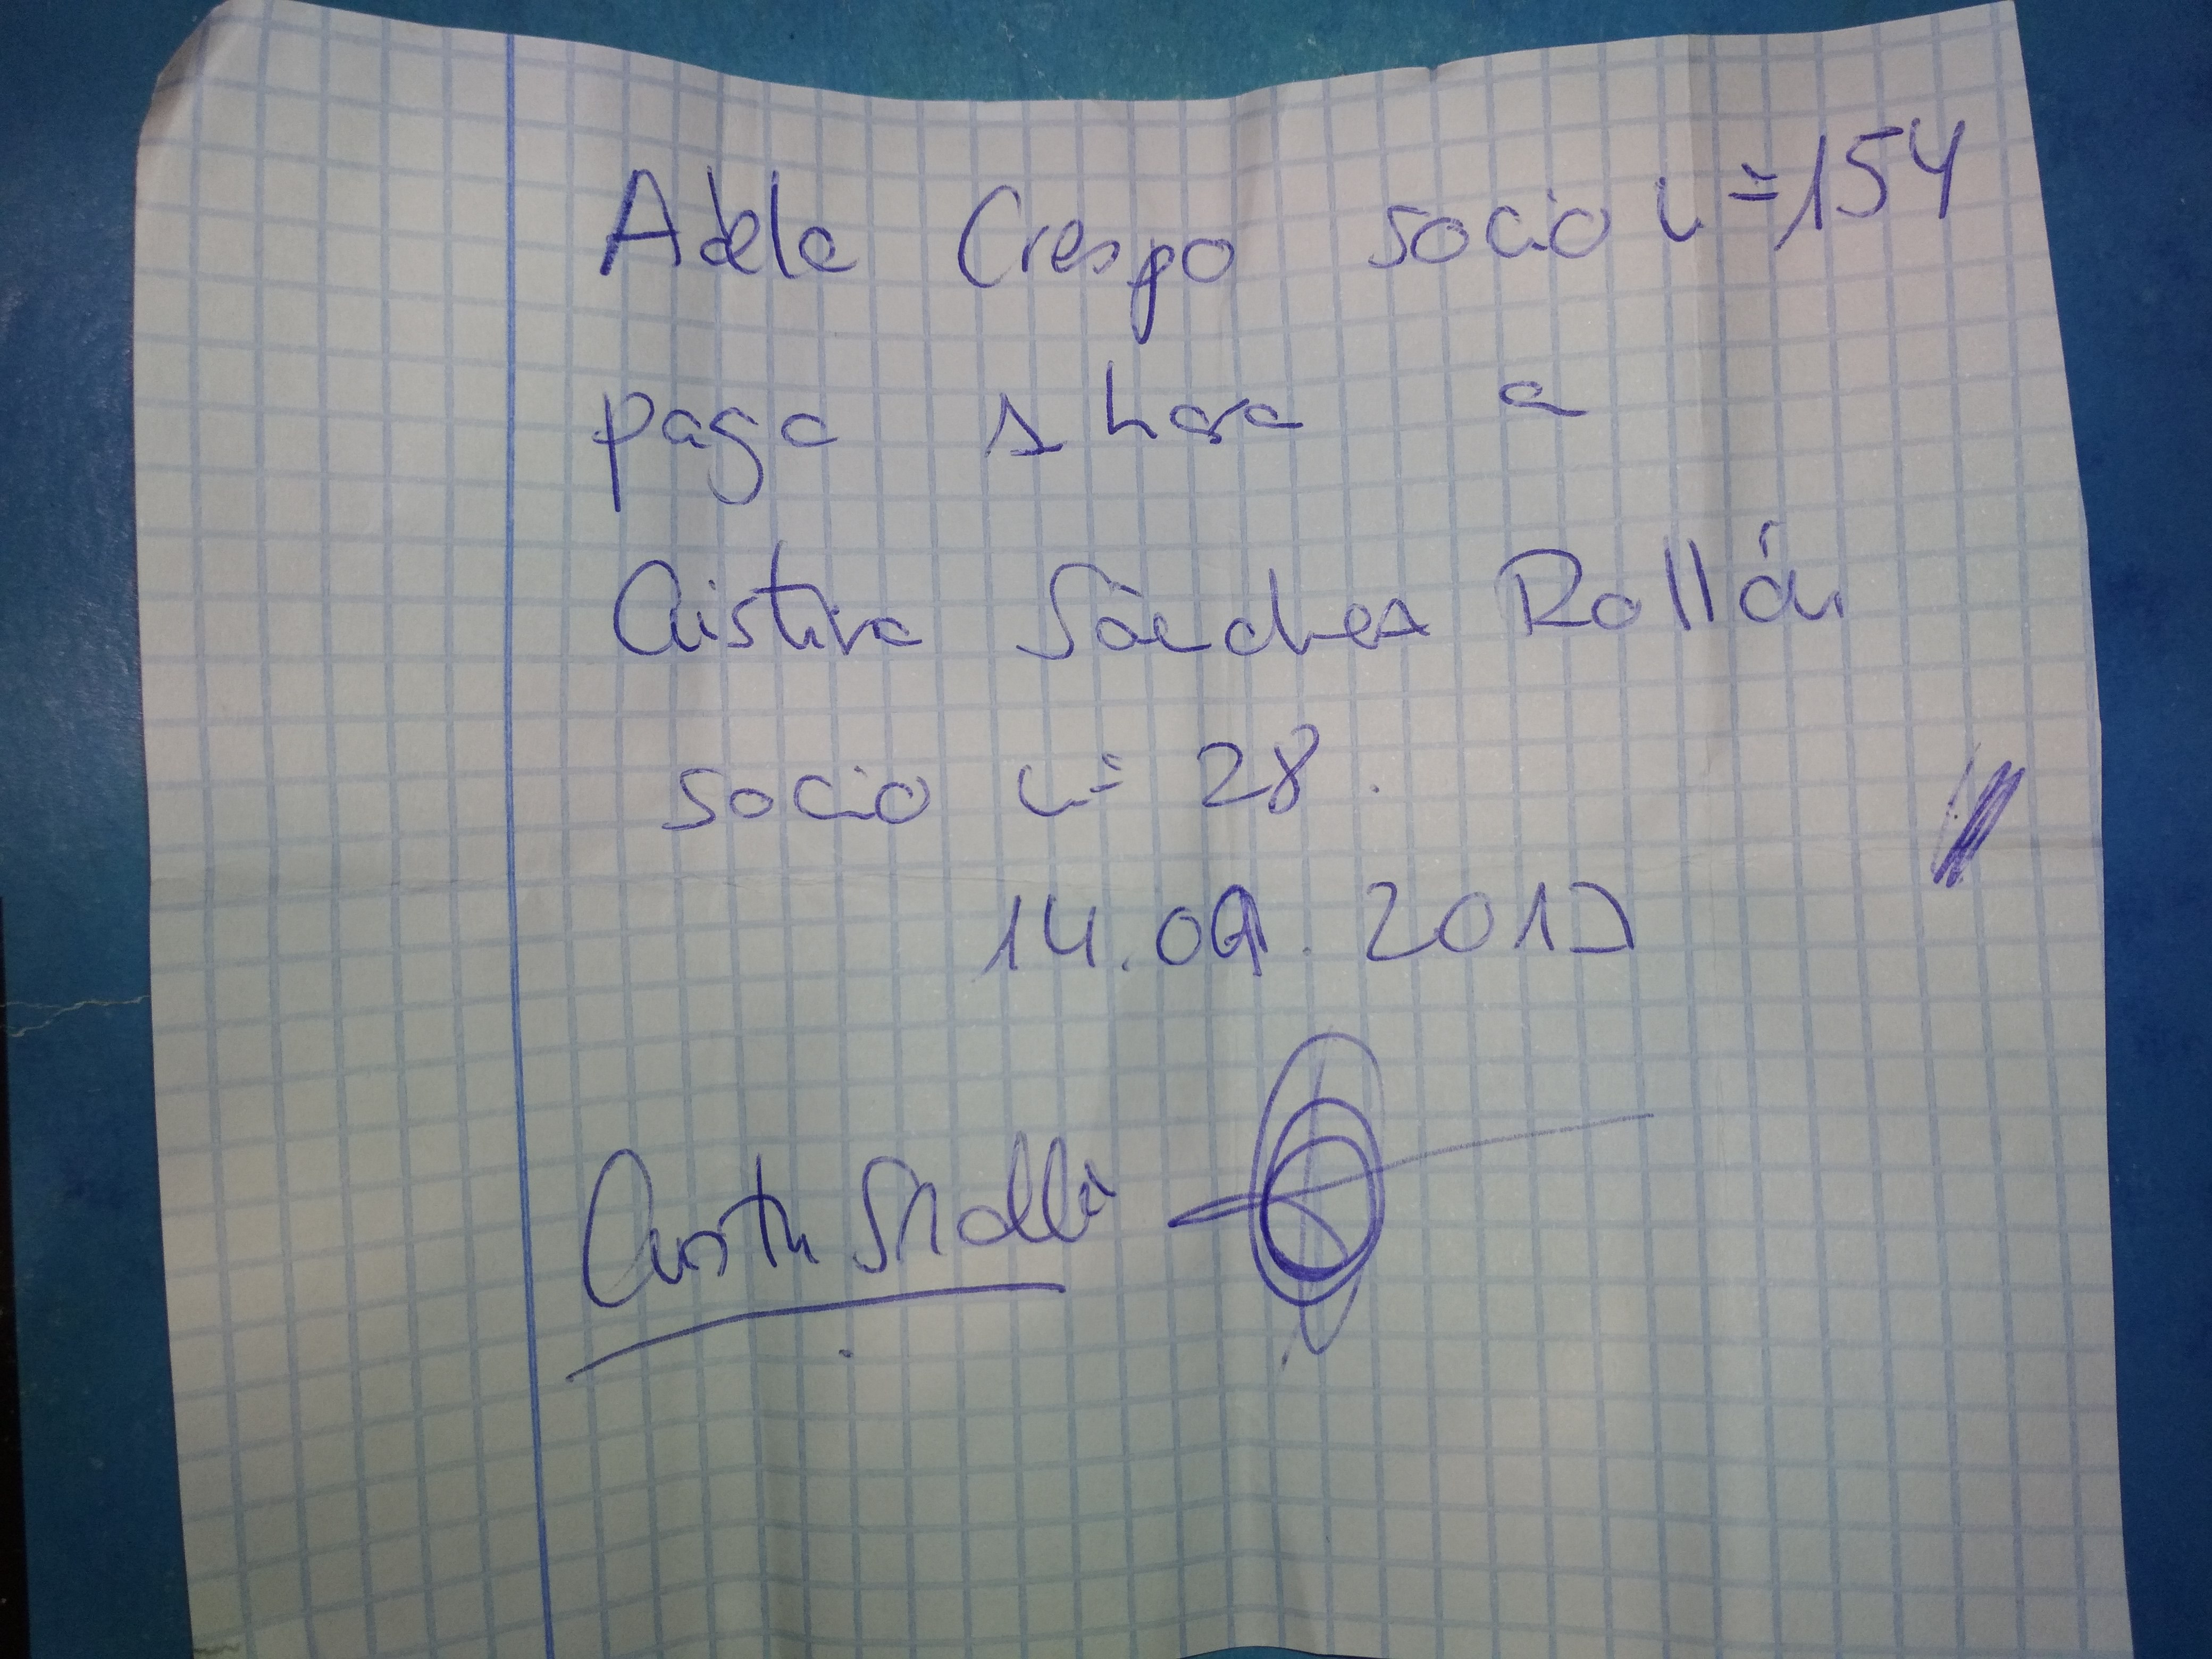 Adela Crespo socio nº 154
paga 1 hora a
Cristina Sánchez Rollán
socio nº 28.
14.09.2017